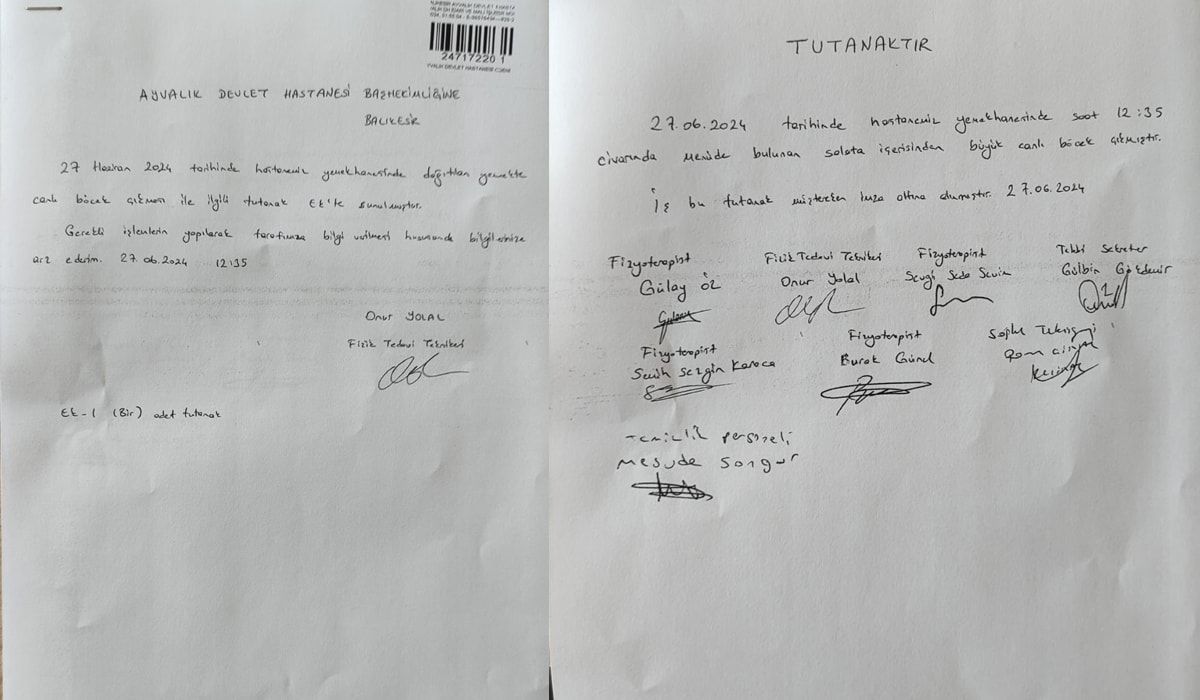 24717220 1
AYVALIK DEVLET HASTANESİ BAŞHEKİMLİĞİNE
BALIKESİR
27 Haziran 2024 tarihinde hastanemiz yemekhanesinde dağıtılan yemekte
canlı böcek çıkması ile ilgili tutanak Ek'te sunulmuştur.
Gerekli işlemlerin yapılarak tarafımıza bilgi verilmesi hususunda bilgilerinize
arz ederim. 27.06.2024 12:35
Onur YOLAL
Fizik Tedavi Teknikeri
Ek-1 (Bir) adet tutanak
TUTANAKTIR
27.06.2024 tarihinde hastanemiz yemekhanesinde saat 12:35
civarında menüde bulunan salata içerisinden büyük canlı böcek çıkmıştır.
İş bu tutanak müştereken imza altına alınmıştır. 27.06.2024
Fizyoterapist
Gülay ÖZ
Fizik Tedavi Teknikeri
Onur Yolal
Fizyoterapist
Sevgi Seda Sevin
Tıbbi Sekreter
Gülbin Gökdemir
Fizyoterapist
Semih Sezgin Karaca
Fizyoterapist
Burak Günel
Sağlık Teknisyeni
Temizlik personeli
Mesude Songur